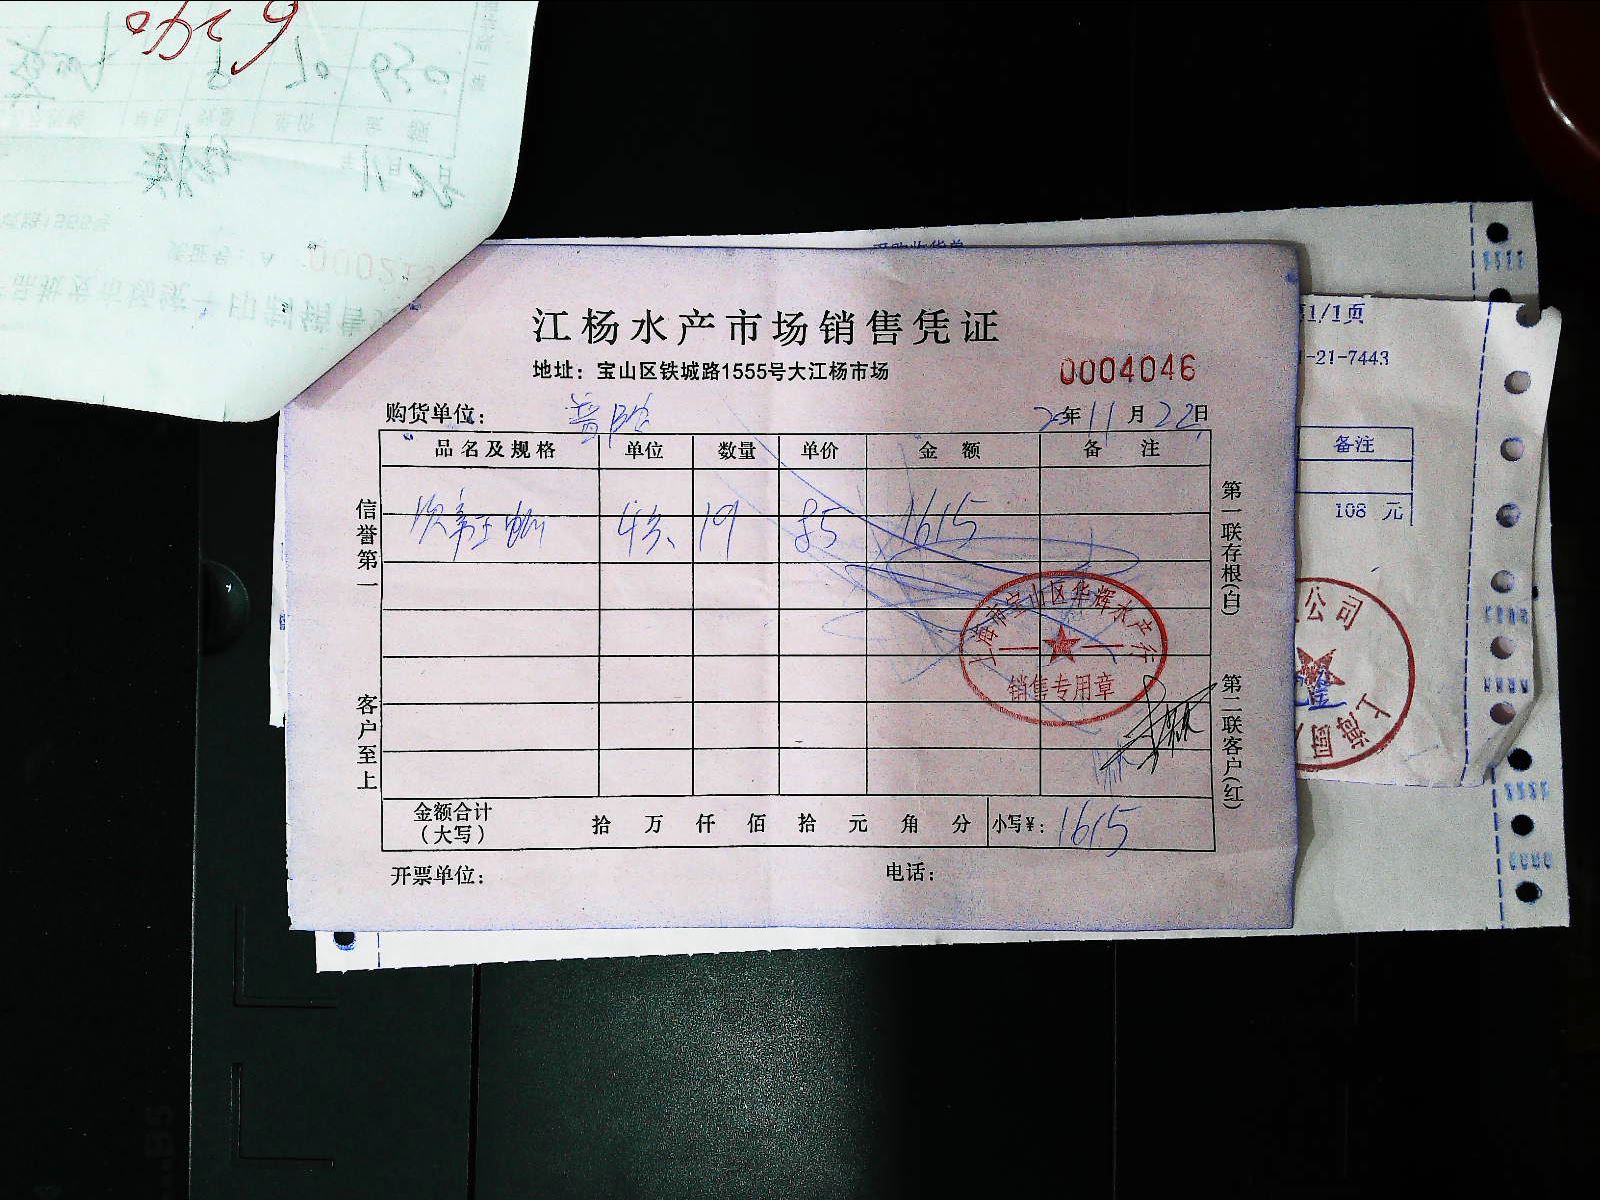 江杨水产市场销售凭证
地址：宝山区铁城路1555号大江杨市场
0004046
购货单位：
25年11月22日
品名及规格 单位 数量 单价 金额 备注
19 85 1615
金额合计（大写） 拾 万 仟 佰 拾 元 角 分 小写¥：1615
开票单位： 电话：
信誉第一
客户至上
第一联存根(白)
第二联客户(红)
上海市宝山区华辉水产行
销售专用章
采购收货单
1/1页
-21-7443
备注
108 元
公司
上海